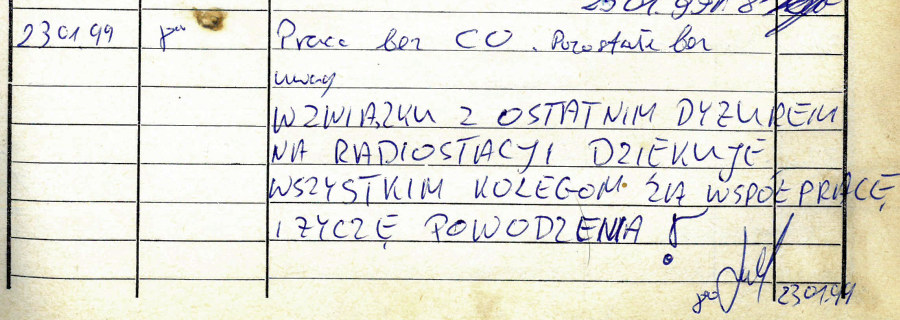 23 01 99 Praca bez CO. Pozostałe bez
uwag
W ZWIĄZKU Z OSTATNIM DYZUREM
NA RADIOSTACJI DZIEKUJE
WSZYSTKIM KOLEGOM ZA WSPÓŁPRACĘ
I ZYCZĘ POWODZENIA !
23 01 99